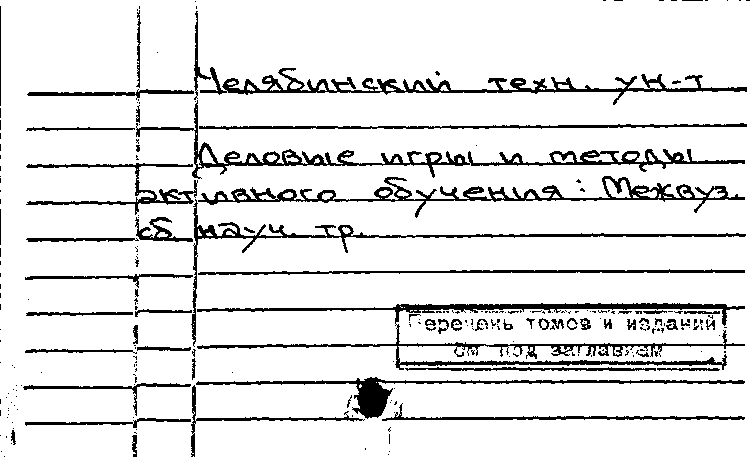 Челябинский техн. ун-т
Деловые игры и методы
активного обучения: Межвуз.
сб науч. тр.
Перечень томов и изданий
см под заглавием